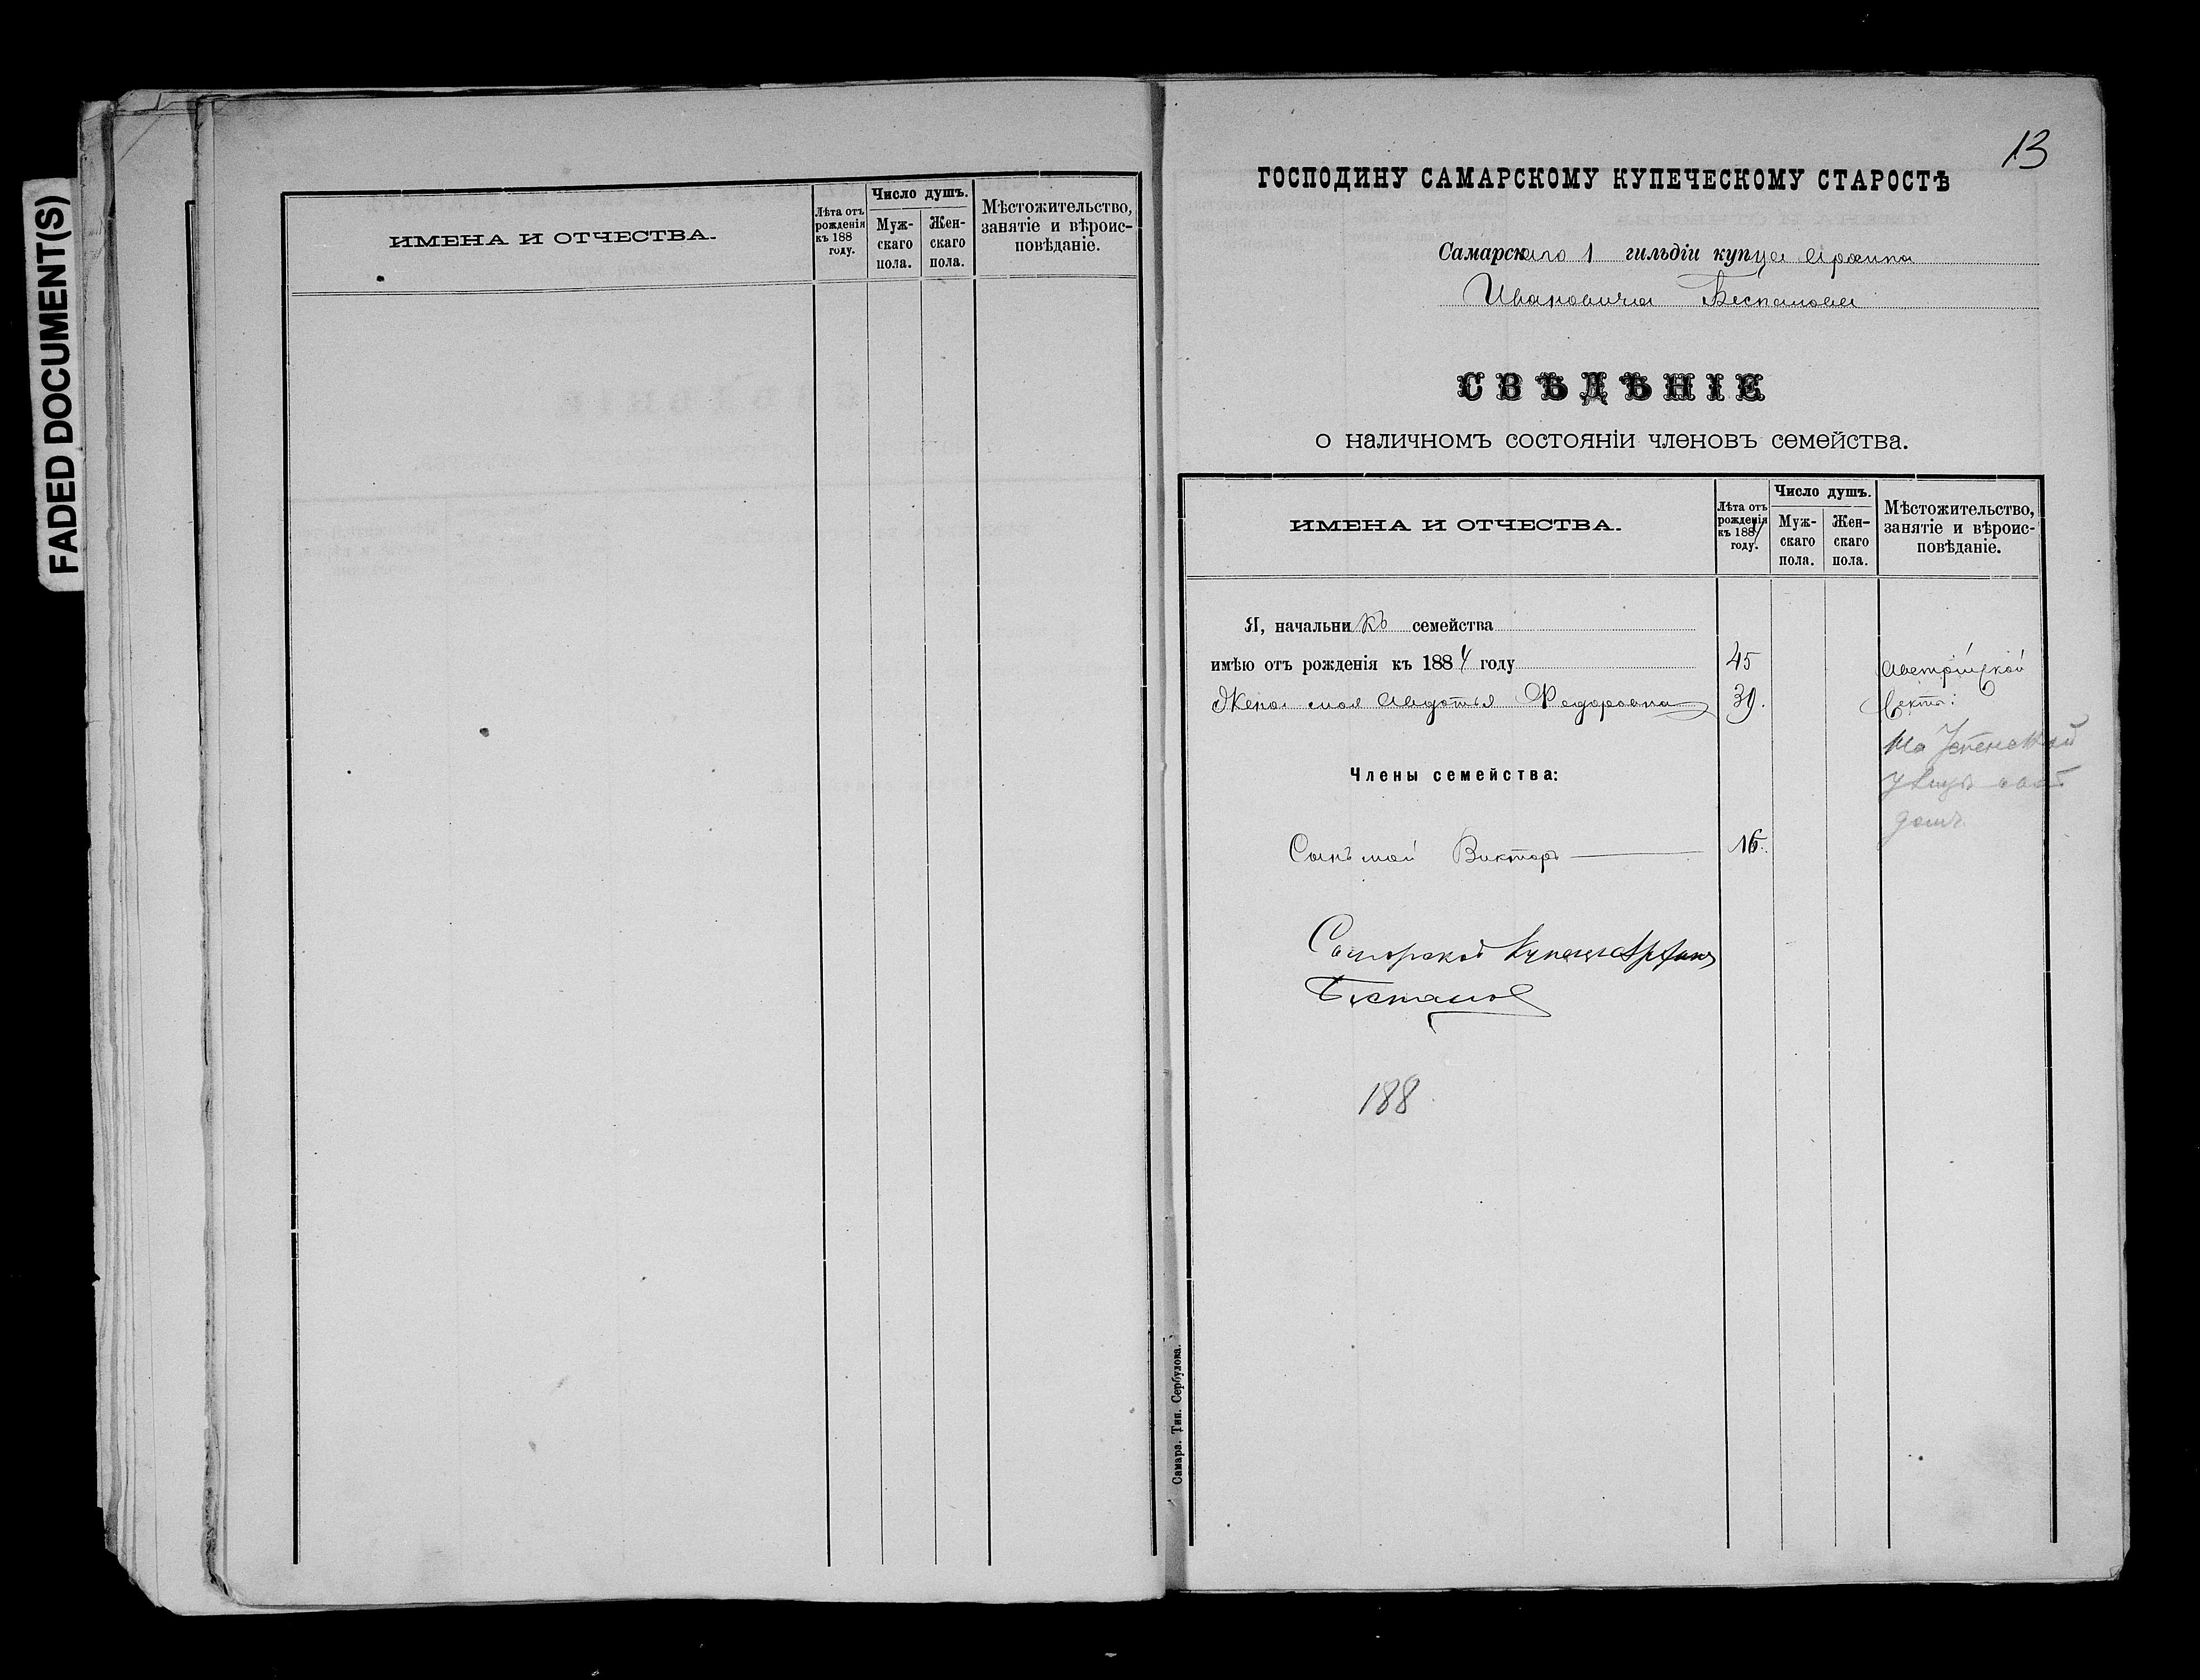 FADED DOCUMENT(S)
ИМЕНА И ОТЧЕСТВА.
Лѣта отъ
рожденія
къ 188
году.
Число душъ.
Муж-
скаго
пола.
Жен-
скаго
пола.
Мѣстожительство,
занятіе и вѣроис-
повѣданіе.
13
ГОСПОДИНУ САМАРСКОМУ КУПЕЧЕСКОМУ СТАРОСТѢ
Самарскаго 1 гильдіи купца Архипа
Ивановича Беспалова
СВѢДѢНІЕ
о наличномъ состояніи членовъ семейства.
ИМЕНА И ОТЧЕСТВА.
Лѣта отъ
рожденія
къ 1884
году.
Число душъ.
Муж-
скаго
пола.
Жен-
скаго
пола.
Мѣстожительство,
занятіе и вѣроис-
повѣданіе.
Я, начальникъ семейства
имѣю отъ рожденія къ 1884 году 45 Австрійской
Жена моя Авдотья Федоровна 39. Секты:
На Успенской
улицѣ соб
домъ
Члены семейства:
Сынъ мой Викторъ 16.
Самарской Купецъ Архипъ
Беспалов
188
Самара. Тип. Сербулова.